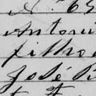 N. 65
Antoni
filho
José